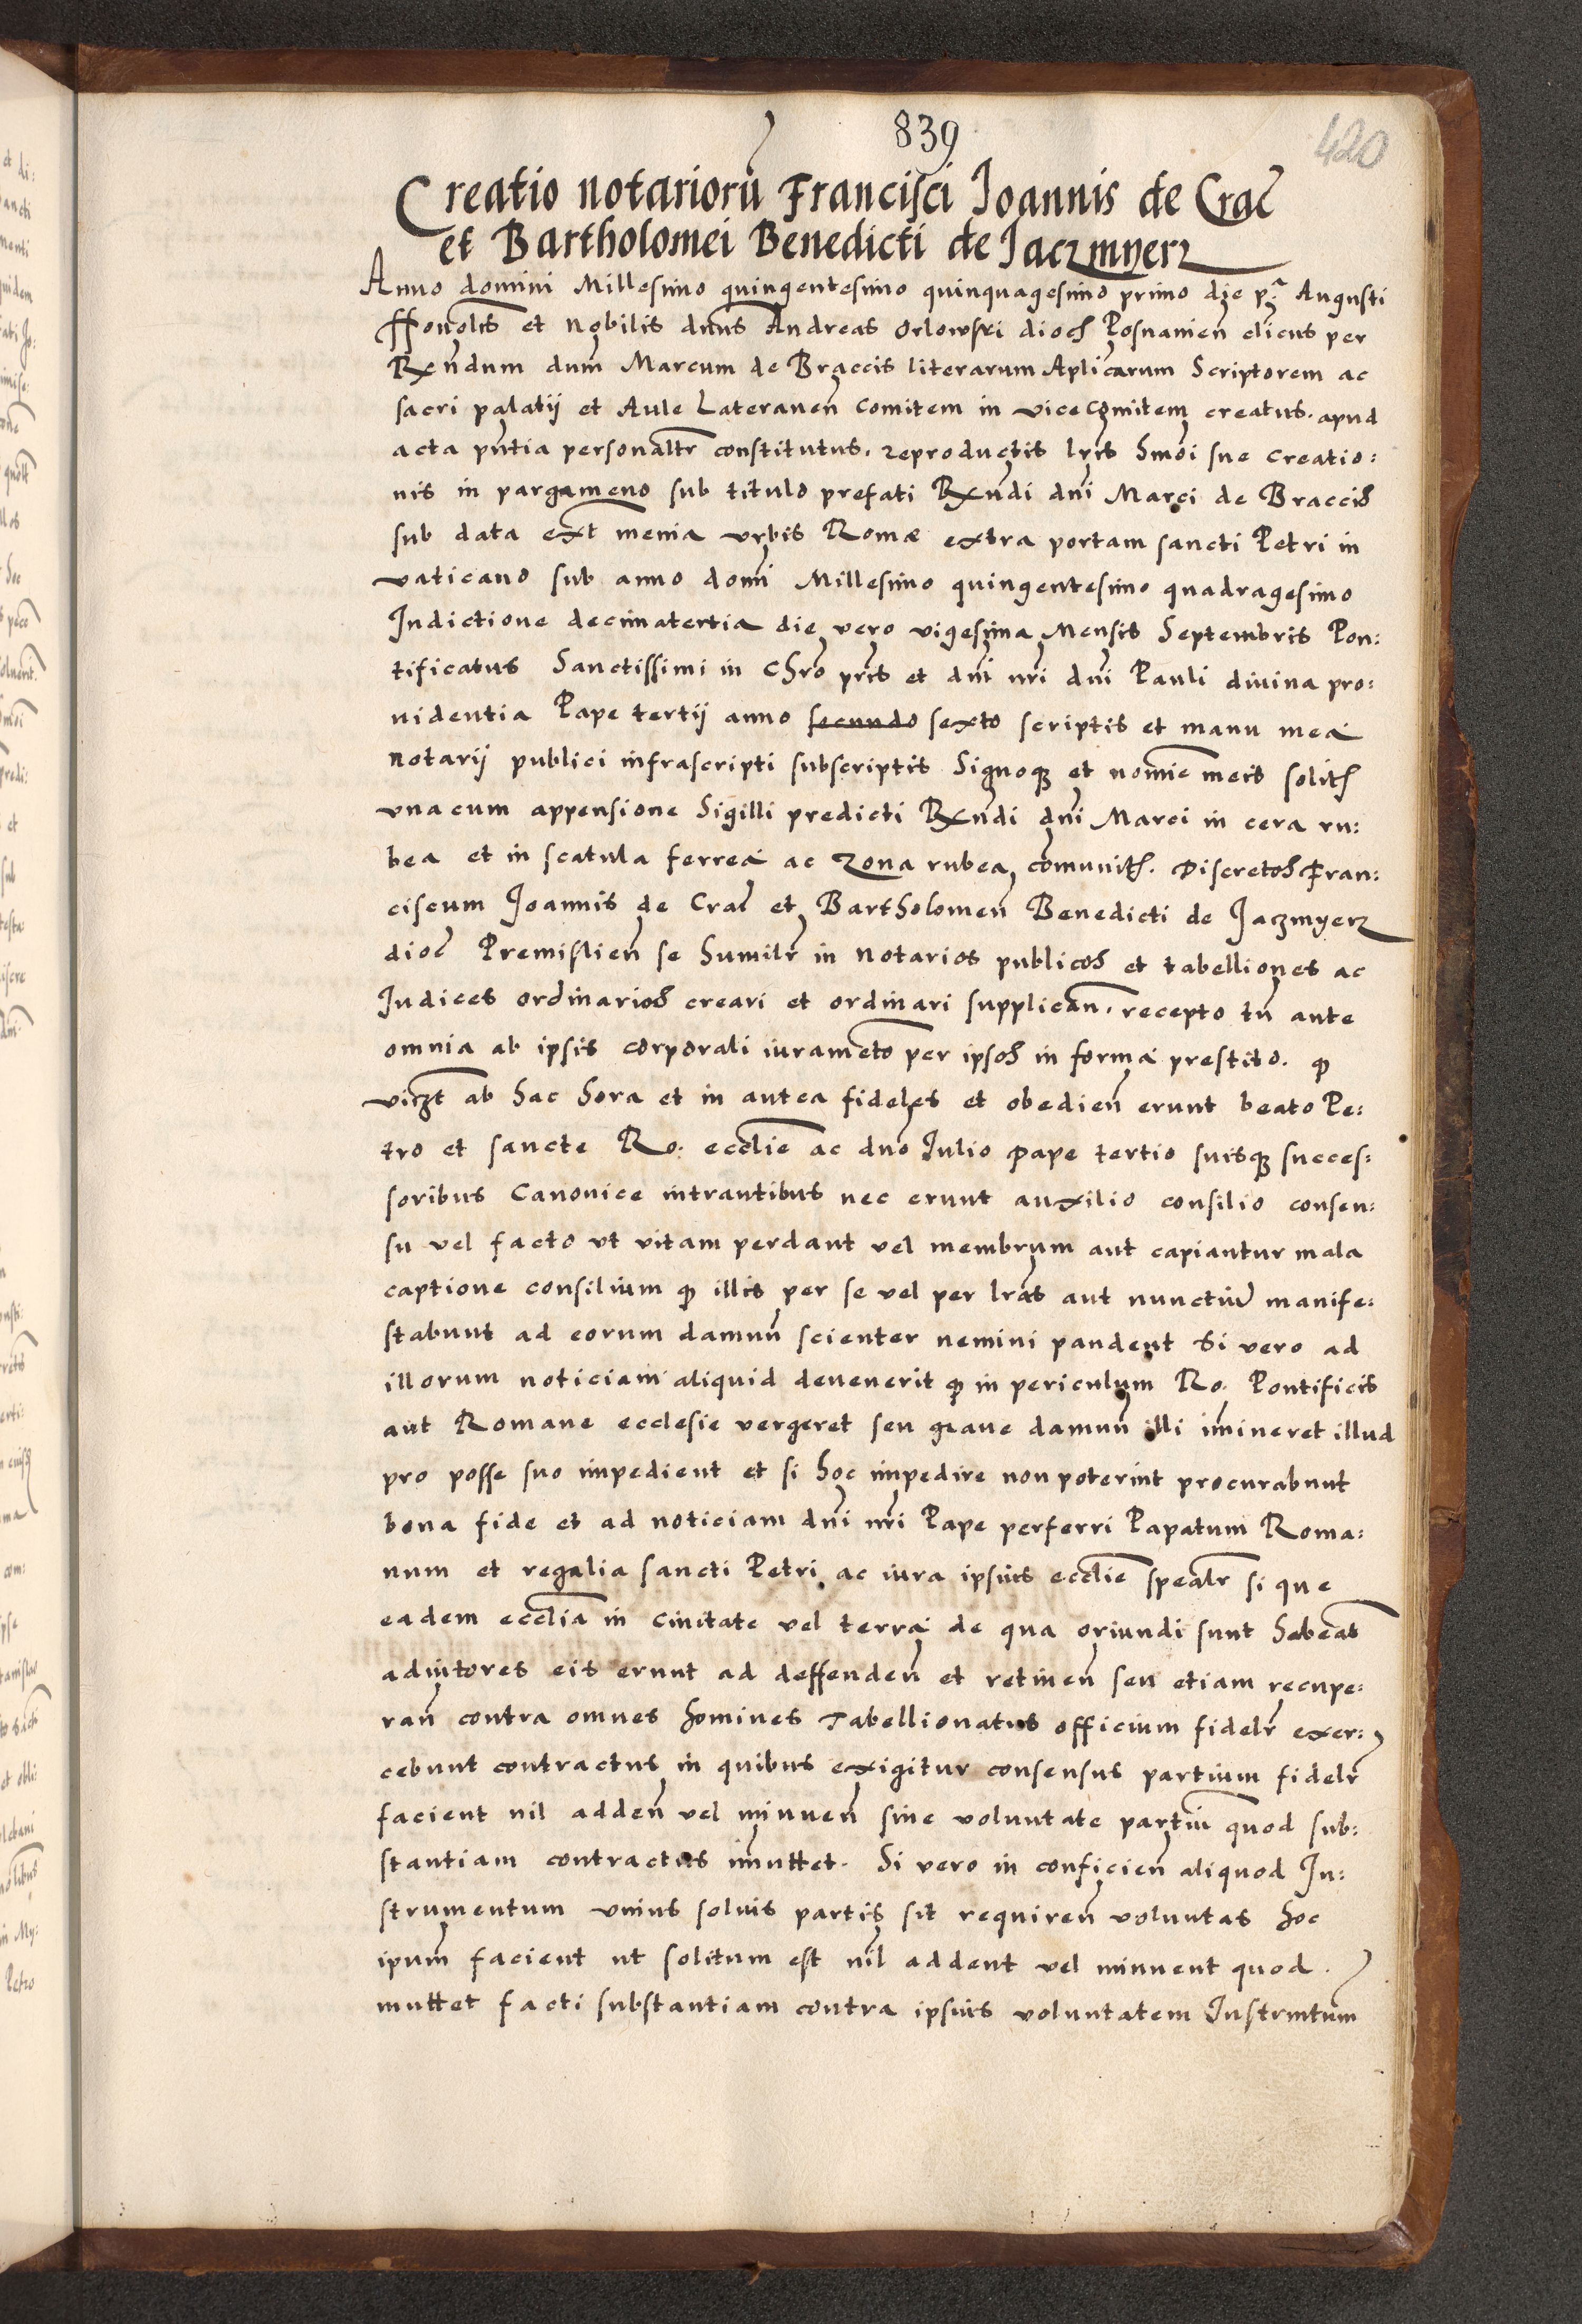 839
420
Creatio notariorū Francisci Joannis de Crac̄
et Bartholomei Benedicti de Jaczmyerz
Anno domini Millesimo quingentesimo quinquagesimo primo die p.ª Augusti
Honolis et Nobilis dnus Andreas Orlowski dioces Posnanien clicus per
Rendum dum Marcum de Braccis literarum Aplicarum Scriptorem ac
sacri palatij et Aule Lateranen comitem in vicecomitem creatus. apud
acta pntia personaltr constitutus. reproductis lris hmoi sue creatio:
nis in pargameno sub titulo prefati Rxndi dni Marci de Braccis
sub data ext menia urbis Romæ extra portam sancti Petri in
vaticano sub anno domi Millesimo quingentesimo quadragesimo
Indictione decimatertia die vero vigesima Mensis Septembris Pon:
tificatus Sanctissimi in Chro pris et dni nri dni Pauli divina pro:
videntia Pape tertij anno secundo sexto scriptis et manu mea
notarij publici infrascripti subscriptis Signoq3 et nomie meis solit
una cum appensione Sigilli predicti Rxndi dni Marci in cera ru:
bea et in scatula ferrea ac zona rubea comunit. Discretos Fran:
ciscum Joannis de Crac̄ et Bartholomeu Benedicti de Jaczmyerz
dioc̄ Premislien se humilr in Notarios publicos et tabelliones ac
Iudices ordinarios creari et ordinari supplican. recepto tn ante
omnia ab ipsis corporali iurameto per ipsos in forma prestito. q
viczt ab hac hora et in antea fideles et obedien erunt beato Pe:
tro et sancte Ro. ecclie ac dno Iulio pape tertio suisq3 succes:
soribus Canonice intrantibus nec erunt auxilio consilio consen:
su vel facto ut vitam perdant vel membrum aut capiantur mala
captione consilium q illis per se vel per lras aut nunctiu manife:
stabunt ad eorum damnu scienter nemini pandent Si vero ad
illorum noticiam aliquid devenerit q in periculum Ro. Pontificis
aut Romane ecclesie vergeret seu grave damnu illi imineret illud
pro posse suo impedient et si hoc impedire non poterint procurabunt
bona fide et ad noticiam dni nri Pape perferri Papatum Roma:
num et regalia sancti Petri ac iura ipsius ecclie spealr si que
eadem ecclia in Civitate vel terra de qua oriundi sunt habeat
adiutores eis erunt ad deffenden et retinen seu etiam recupe:
ran contra omnes homines Tabellionatus officium fidelr exer:
cebunt contractus in quibus exigitur consensus partium fidelr
facient nil adden vel minuen sine voluntate partiu quod sub:
stantiam contractus imuttet. Si vero in conficien aliquod In:
strumentum unius solius partis sit requiren voluntas hoc
ipum facient ut solitum est nil addent vel minuent quod.
muttet facti substantiam contra ipsius voluntatem Instrmtum